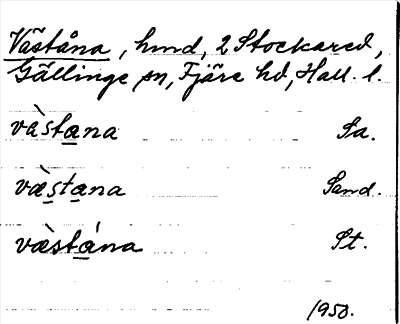 Väståna, hmd, 2 Stockared,
Gällinge sn, Fjäre hd, Hall. l.
væ̀stana Sa.
væ̀stana Sand.
væ̀stána St.
1950.